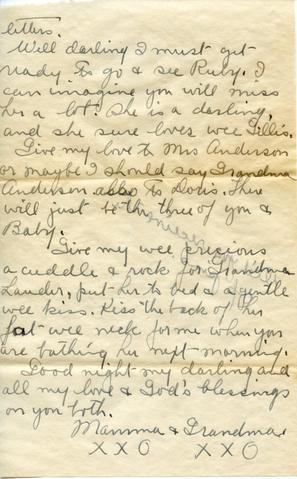 letters.
Well darling I must get
ready to go & see Ruby. I
can imagine you will miss
her a lot. She is a darling,
and she sure loves wee Lillis.
Give my love to Mrs Anderson
or maybe I should say Grandma
Anderson also to Doris. There
will just be the three of you &
Baby.
Give my wee precious
a cuddle & rock for Grandma
Lauder, put her to bed & a gentle
wee kiss. Kiss the back of her
fat wee neck for me when you
are bathing her next morning.
Good night my darling and
all my love & God's blessings
on you both.
Mamma & Grandma.
X X O X X O